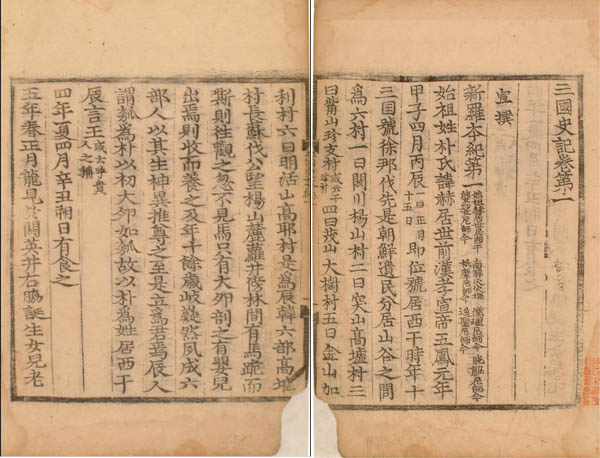 三國史記卷第一
宣撰
新羅本紀第一 赫居世居西干 南解次次雄 儒理尼師今 脫解尼師今 婆娑尼師今 祇摩尼師今 逸聖尼師今
始祖姓朴氏諱赫居世前漢孝宣帝五鳳元年
甲子四月丙辰一曰正月十五日即位號居西干時年十
三國號徐那伐先是朝鮮遺民分居山谷之間
爲六村一曰閼川楊山村二曰突山高墟村三
曰觜山珍支村或云干珍村四曰茂山大樹村五曰金山加
利村六曰明活山高耶村是爲辰韓六部高墟
村長蘇伐公望楊山麓蘿井傍林間有馬跪而
嘶則徃觀之忽不見馬只有大卵剖之有嬰兒
出焉則收而養之及年十餘歲岐嶷然夙成六
部人以其生神異推尊之至是立爲君焉辰人
謂瓠爲朴以初大卵如瓠故以朴爲姓居西干
辰言王或云呼貴人之稱
四年夏四月辛丑朔日有食之
五年春正月龍見於閼英井右脇誕生女兒老